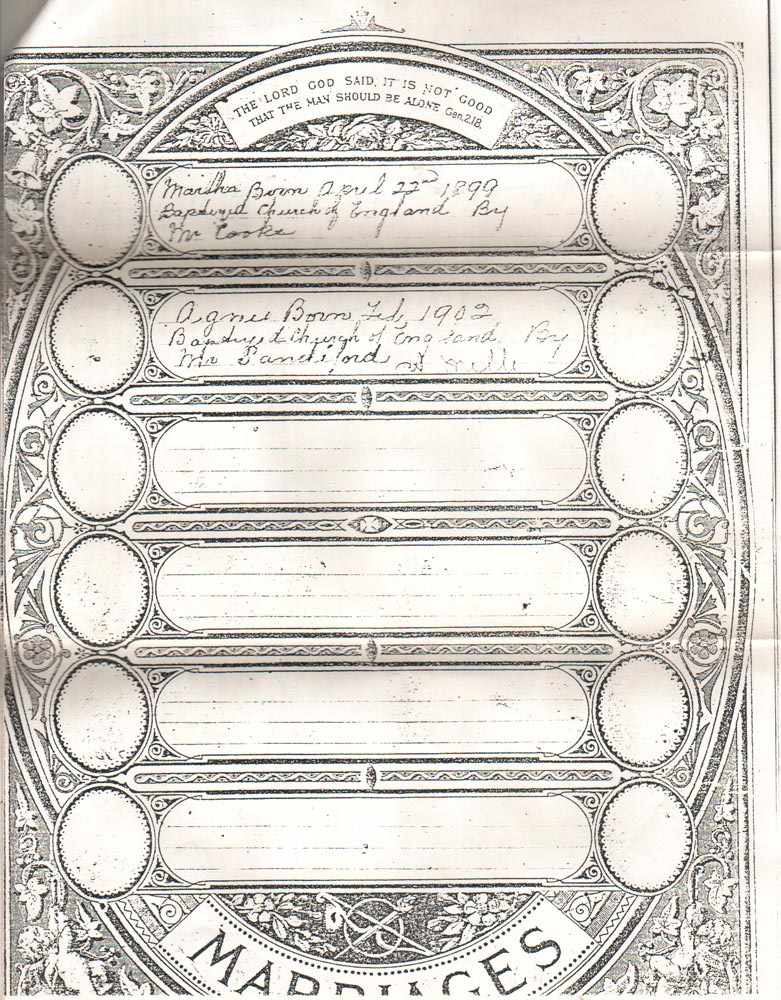 THE LORD GOD SAID, IT IS NOT GOOD
THAT THE MAN SHOULD BE ALONE Gen.2.18.
Martha Born April 22nd 1899
Baptized Church of England By
Mr Cooke
Agnes Born Feb 1902
Baptized Church of England By
Mr
MARRIAGES